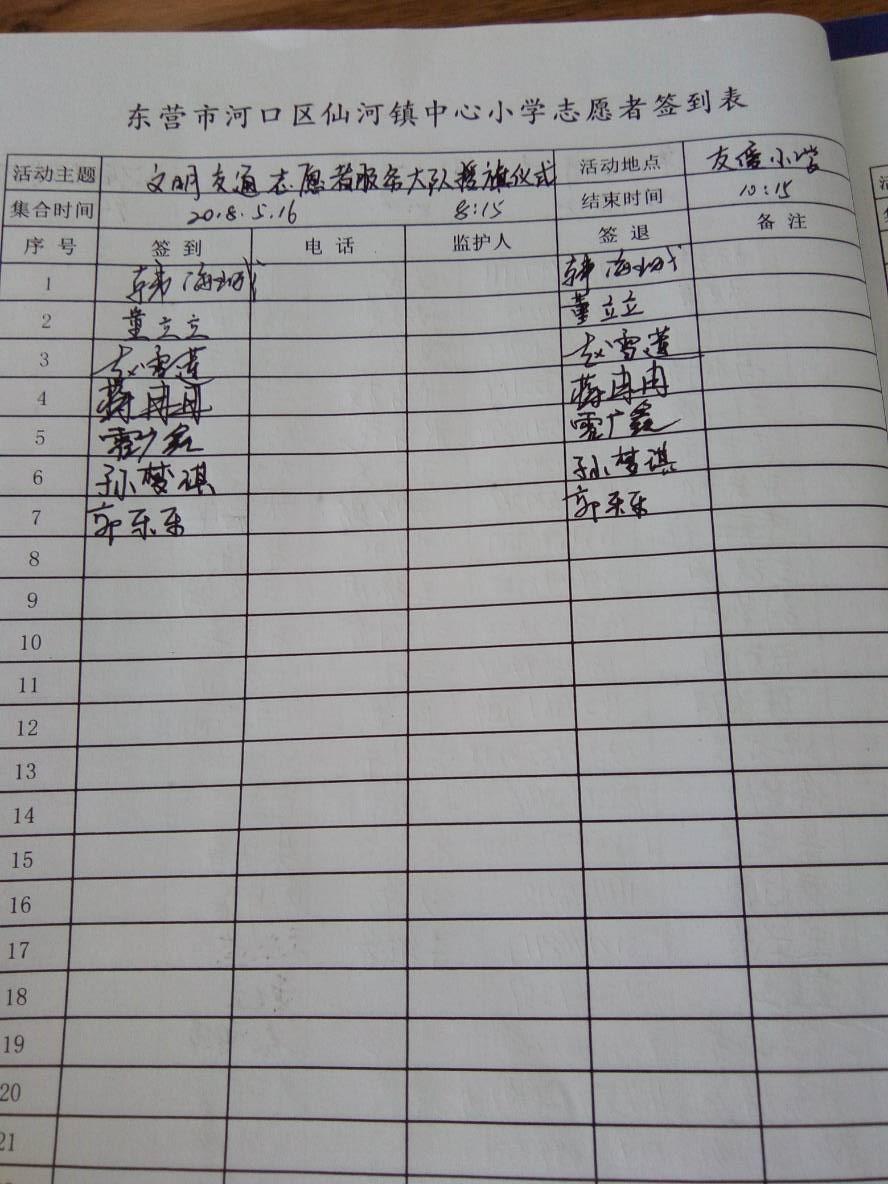 东营市河口区仙河镇中心小学志愿者签到表
活动主题 文明交通志愿者服务大队授旗仪式 活动地点 友信小学
集合时间 2018.5.16 8:15 结束时间 10:15
序号 签到 电话 监护人 签退 备注
1 韩海城 韩海城
2 董立立 董立立
3 赵雪莲 赵雪莲
4 蒋冉冉 蒋冉冉
5 霍广鑫 霍广鑫
6 孙梦琪 孙梦琪
7 郭乐乐 郭乐乐
8
9
10
11
12
13
14
15
16
17
18
19
20
21